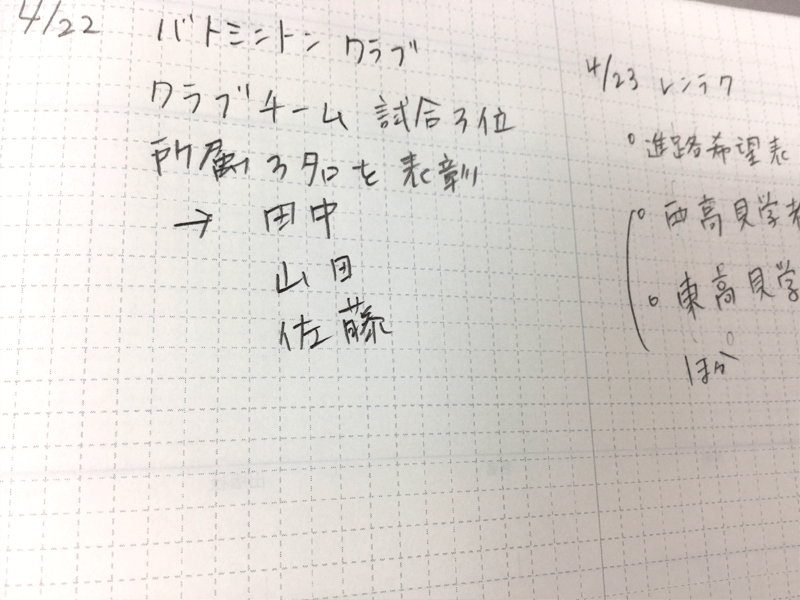 4/22 バトミントン クラブ
クラブチーム 試合3位
所属 3名を 表彰
→ 田中
山田
佐藤
4/23 レンラク
○ 進路希望表
○ 西高見学
○ 東高見学
ほか